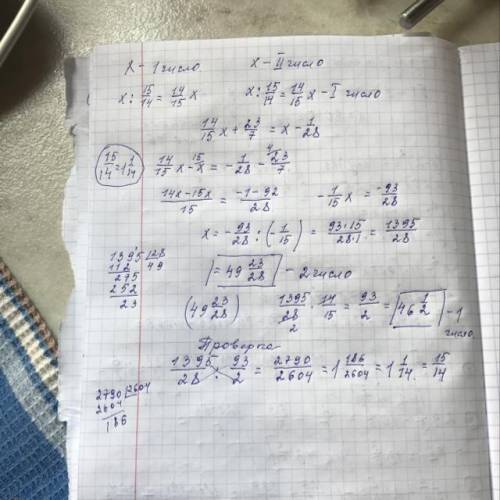 x - 1 число   x - II число
x : 15/14 = 14/15 x   x : 15/14 = 14/15 x - I число
14/15 x + 23/7 = x - 1/28
15/14 = 1 1/14   14/15 x - x = - 1/28 - 23/7
14x - 15x / 15 = -1 - 92 / 28   - 1/15 x = -93/28
x = - 93/28 : (- 1/15) = 93·15 / 28·1 = 1395/28
1395 | 28
112   49
275
252
23
= 49 23/28 - 2 число
(49 23/28)   1395/28 · 14/15 = 93/2 = 46 1/2 - 1 число.
Проверка
1395/28 : 93/2 = 2790/2604 = 1 186/2604 = 1 1/14 = 15/14
2790 | 2604
2604
186